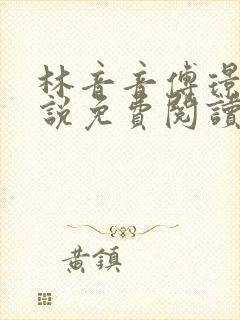 林音音傅璟
說免費閱讀
黃鎮